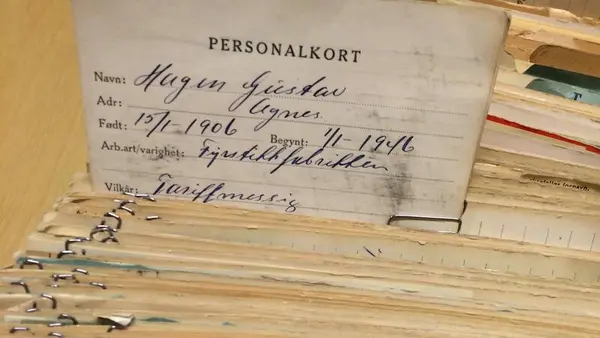 PERSONALKORT
Navn: Hagen Gustav
Adr: Agnes
Født: 15/1-1906 Begynt: 1/1-1946
Arb.art/varighet: Fyrstikkfabrikken
Vilkår: Tariffmessig